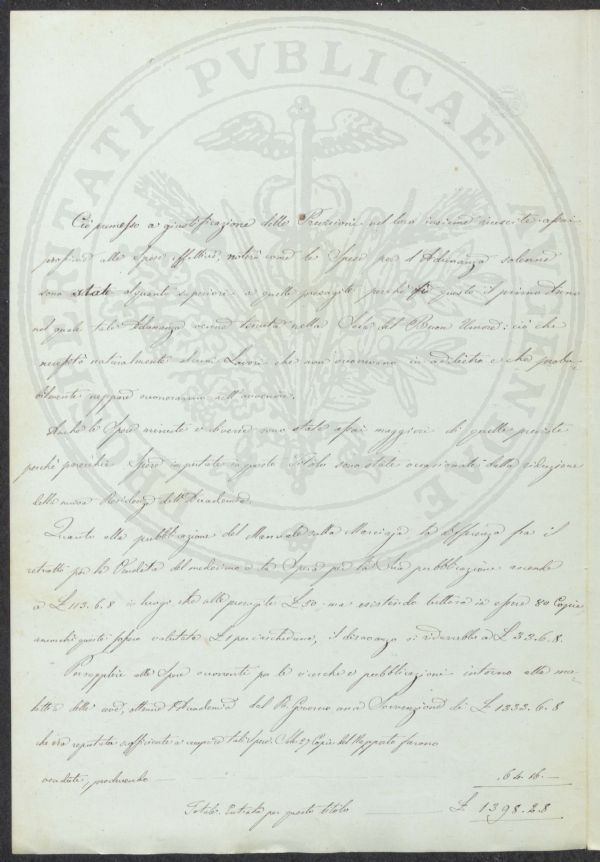 PROSPERITATI PVBLICAE AVGENDAE
Ciò premesso a giustificazione delle Previsioni nel loro insieme riuscite assai
prossime alle Spese effettive, noterò come le Spese per l'Adunanza solenne
sono state alquanto superiori a quelle presagite, perché fù questo il primo Anno
nel quale tale Adunanza venne tenuta nella Sala del Buon Umore; ciò che
necessitò naturalmente alcuni Lavori che non occorrevano in addietro e che proba-
bilmente neppure occorreranno nell'avvenire.
Anche le Spese minute e diverse sono state assai maggiori di quelle previste
perché parecchie Spese imputate in questo titolo sono state occasionate dalla riduzione
della nuova Residenza dell'Accademia.
Quanto alla pubblicazione del Manuale sulla Maremma la differenza fra il
retratto per la Vendita del medesimo e la Spesa per la Sua pubblicazione ascende
a £ 113.6.8 in luogo che alle presagite £ 50. ma esistendo tuttora in essere 80 Copie
ancorché queste fossero valutate £ 1 per ciascheduna, il disavanzo si ridurrebbe a £ 33.6.8.
Per supplire alle Spese occorrenti per le ricerche e pubblicazioni intorno alla ma-
lattia delle uve, ottenne l'Accademia dal R. Governo una Sovvenzione di £ 1333.6.8
che era reputata sufficiente a cuoprire tali Spese. Copie del Rapporto furono
vendute, producendo 64.16.—
Totale Entrata per questo titolo £ 1398.2.8